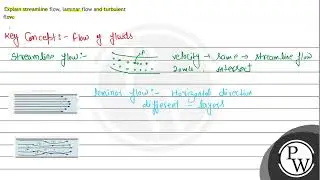 Explain streamline flow, laminar flow and turbulent
flow.
Key Concept:- Flow of fluids
Streamline flow:-
P
velocity → same → streamline flow
intersect
laminar flow:- Horizontal direction
different - layers
PW